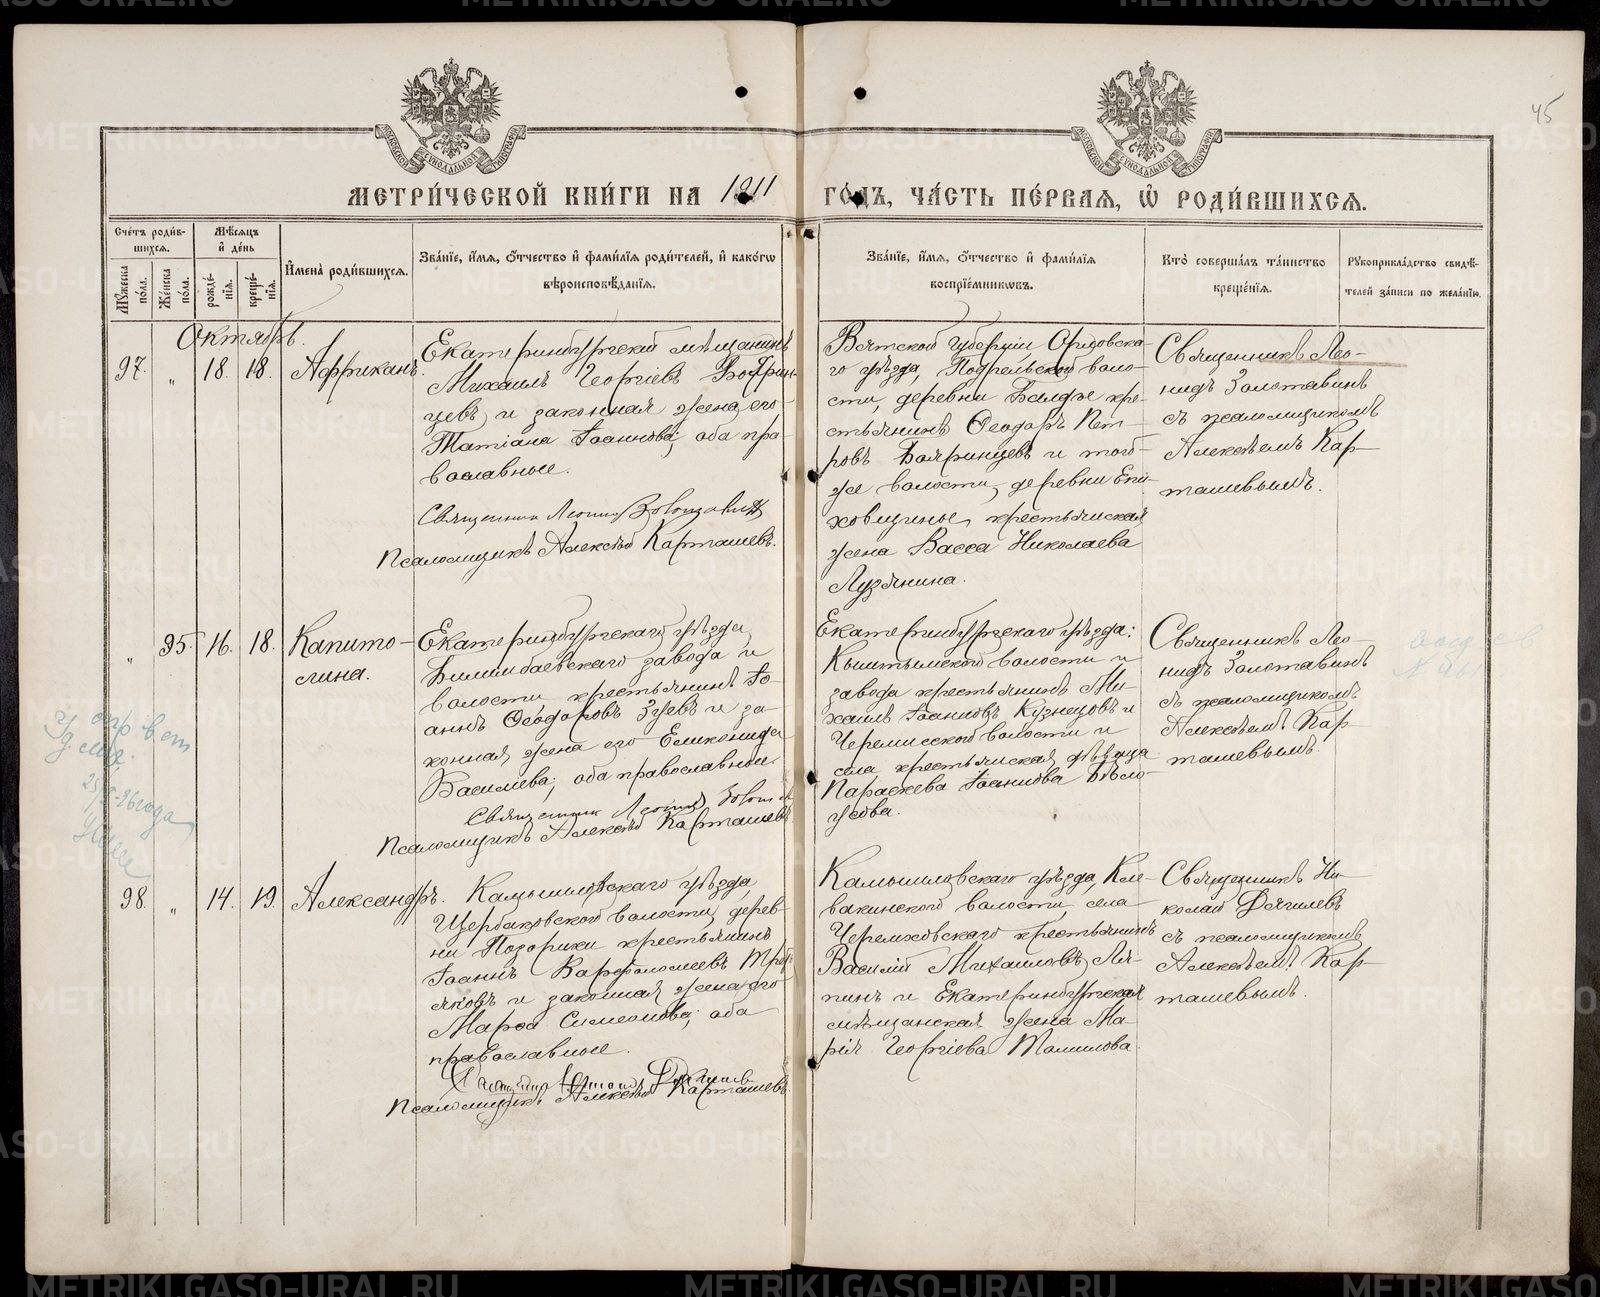 45
МОСКОВСКОЙ СѴНОДАЛЬНОЙ ТИПОГРАФІИ
МОСКОВСКОЙ СѴНОДАЛЬНОЙ ТИПОГРАФІИ
МЕТРИ́ЧЕСКОЙ КНИ́ГИ НА 1911 ГО́ДЪ, ЧА́СТЬ ПЕ́РВАЯ, Ѡ҆ РОДИ́ВШИХСЯ.
Сче́тъ роди́в-
шихся.
Мꙋ́жеска по́ла.
Же́нска по́ла.
Мѣ́сяцъ и҆ де́нь
рожде́-нїя.
креще́-нїя.
И҆мена̀ роди́вшихся.
Зва́нїе, и҆́мя, ѻ҆́тчество и҆ фами́лїя роди́телей, и҆ како́гѡ
вѣроисповѣ́данїя.
Зва́нїе, и҆́мя, ѻ҆́тчество и҆ фами́лїя
воспрїе́мникѡвъ.
Кто̀ соверша́лъ та́инство
креще́нїя.
Рꙋкоприкла́дство свидѣ́-
телей за́писи по жела́нїю.
Октябрь.
97. " 18. 18. Африканъ.
Екатеринбургскій мѣщанинъ
Михаилъ Георгіевъ Боярин-
цевъ и законная жена его
Татіана Іоаннова, оба пра-
вославные.
Священник Леонид Золотавин
Псаломщикъ Алексѣй Карташевъ.
Вятской губерніи Орловска-
го уѣзда, Подрельской воло-
сти, деревни кре-
стьянинъ Ѳеодоръ Пет-
ровъ Бояринцевъ и той-
же волости, деревни Епи-
ховщины, крестьянская
жена Васса Николаева
Лузянина.
Священникъ Лео-
нидъ Золотавинъ
съ псаломщикомъ
Алексѣемъ Кар-
ташевымъ.
" 95. 16. 18. Капито-
лина.
Екатеринбургскаго уѣзда,
Билимбаевскаго завода и
волости крестьянинъ Іо-
аннъ Ѳеодоровъ Зуевъ и за-
конная жена его Еликонида
Васильева; оба православные.
Священник Леонид
Псаломщикъ Алексѣй Карташевъ
Екатеринбургскаго уѣзда:
Кыштымской волости и
завода крестьянинъ Ми-
хаилъ Іоанновъ Кузнецовъ и
Черемисской волости и
села крестьянская дѣвица
Параскева Іоаннова Бѣло-
усова.
Священникъ Лео-
нидъ Золотавинъ
съ псаломщикомъ
Алексѣемъ Кар-
ташевымъ.
98. " 14. 19. Александръ.
Камышловскаго уѣзда,
Щербаковской волости, дерев-
ни крестьянинъ
Іоаннъ Варѳоломеевъ Трет-
яковъ и законная жена его
Марѳа Симеонова; оба
православные.
Псаломщикъ Алексѣй Карташевъ
Камышловскаго уѣзда, Кле-
вакинской волости, села
Черемховскаго крестьянинъ
Василій Михаиловъ Ля-
пинъ и Екатеринбургская
мѣщанская жена Ма-
рія Георгіева Томилова.
Священникъ Ни-
колай Дягилевъ
съ псаломщикомъ
Алексѣемъ Кар-
ташевымъ.
METRIKI.GASO-URAL.RU